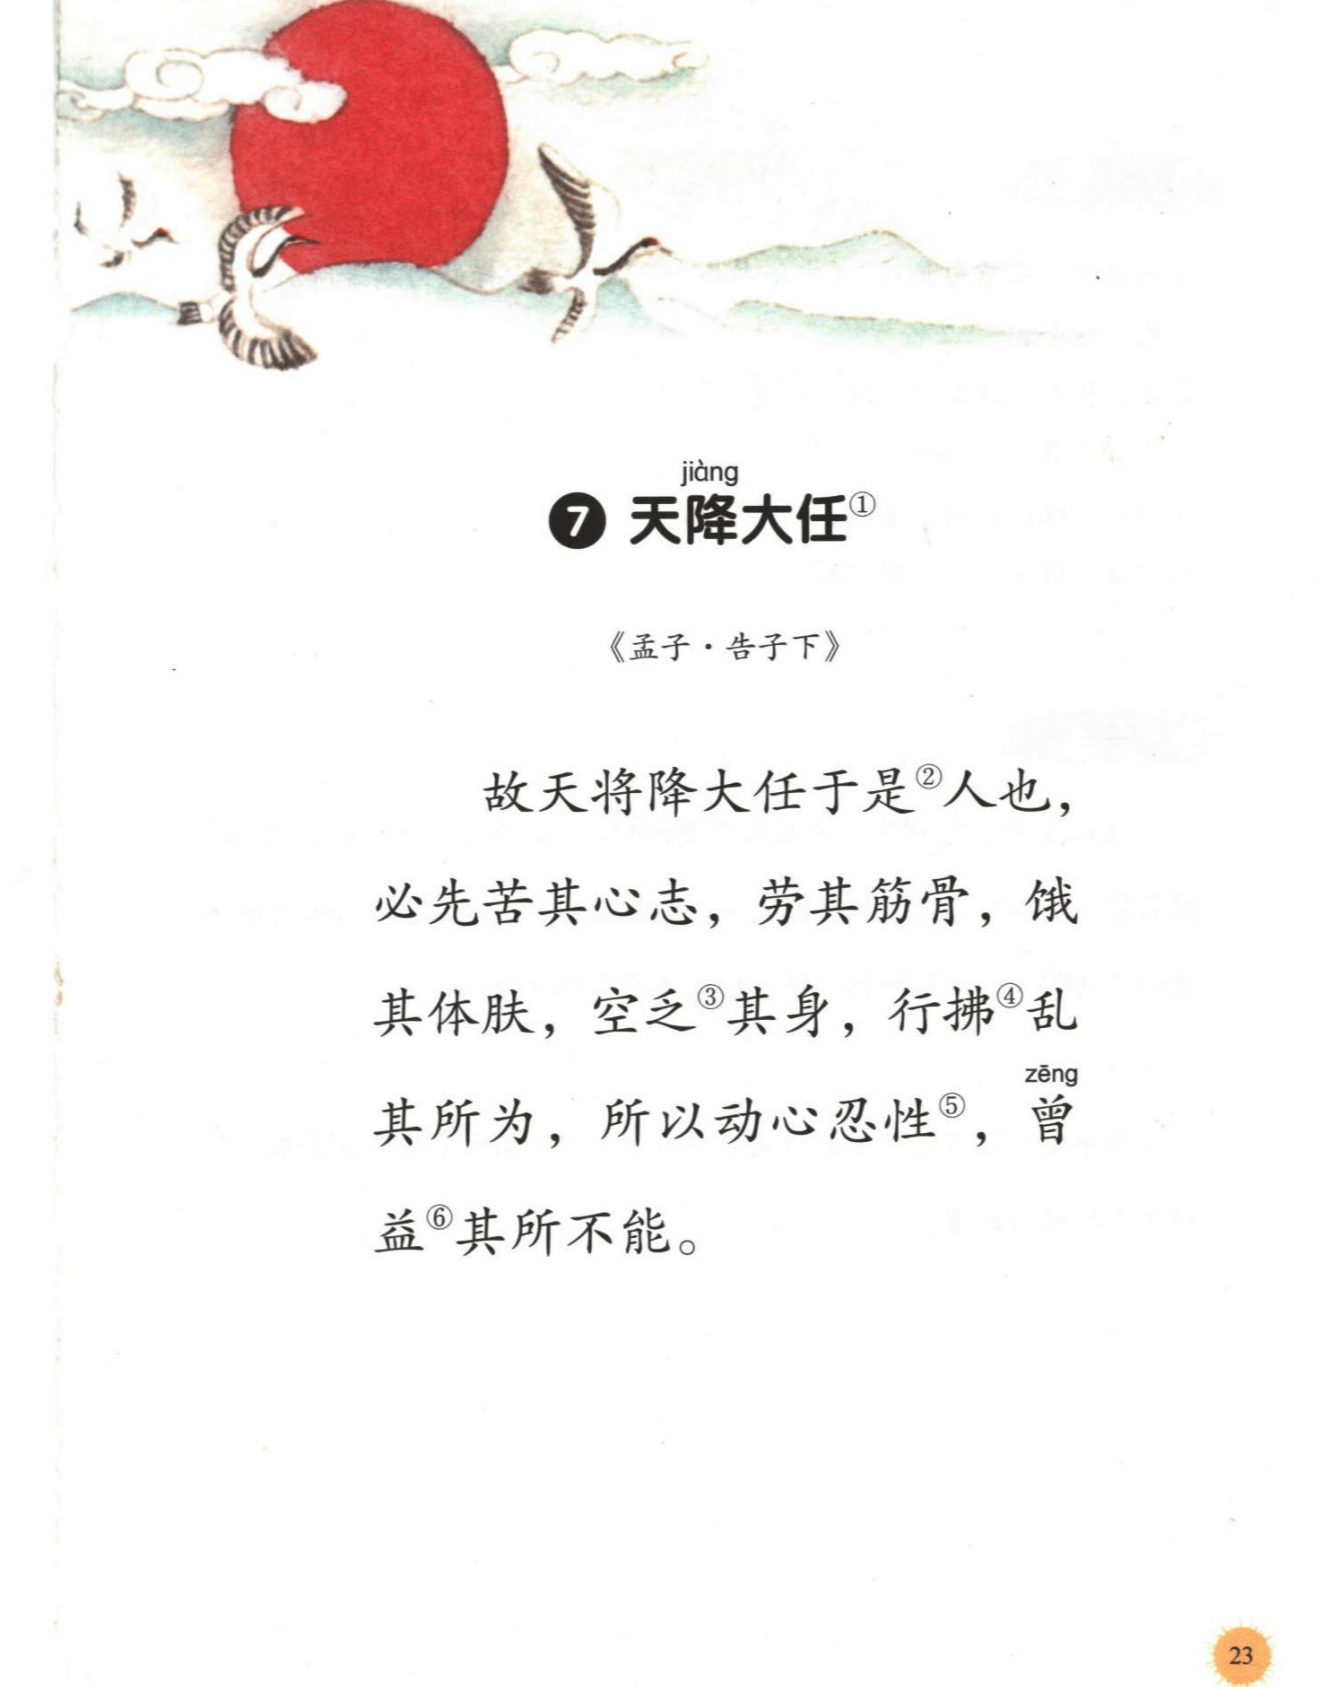 jiàng
7 天降大任①
《孟子·告子下》
故天将降大任于是②人也，
必先苦其心志，劳其筋骨，饿
其体肤，空乏③其身，行拂④乱
zēng
其所为，所以动心忍性⑤，曾
益⑥其所不能。
23